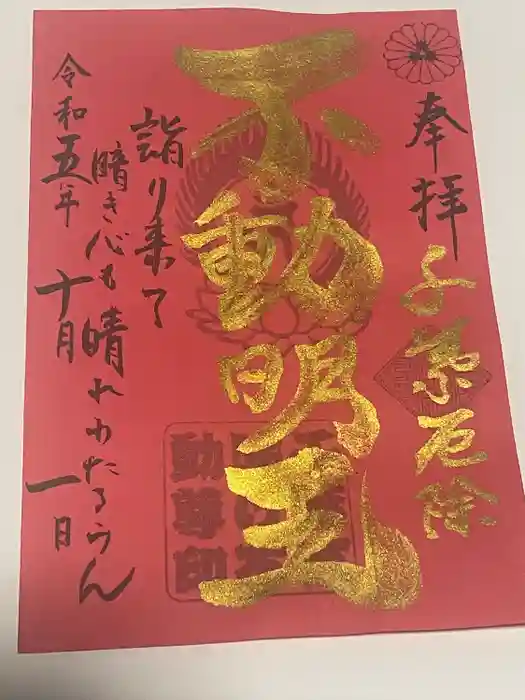 奉拝
子繁厄除
不動明王
詣り来て
暗き心も晴れわたるらん
令和五年十月一日
動尊印